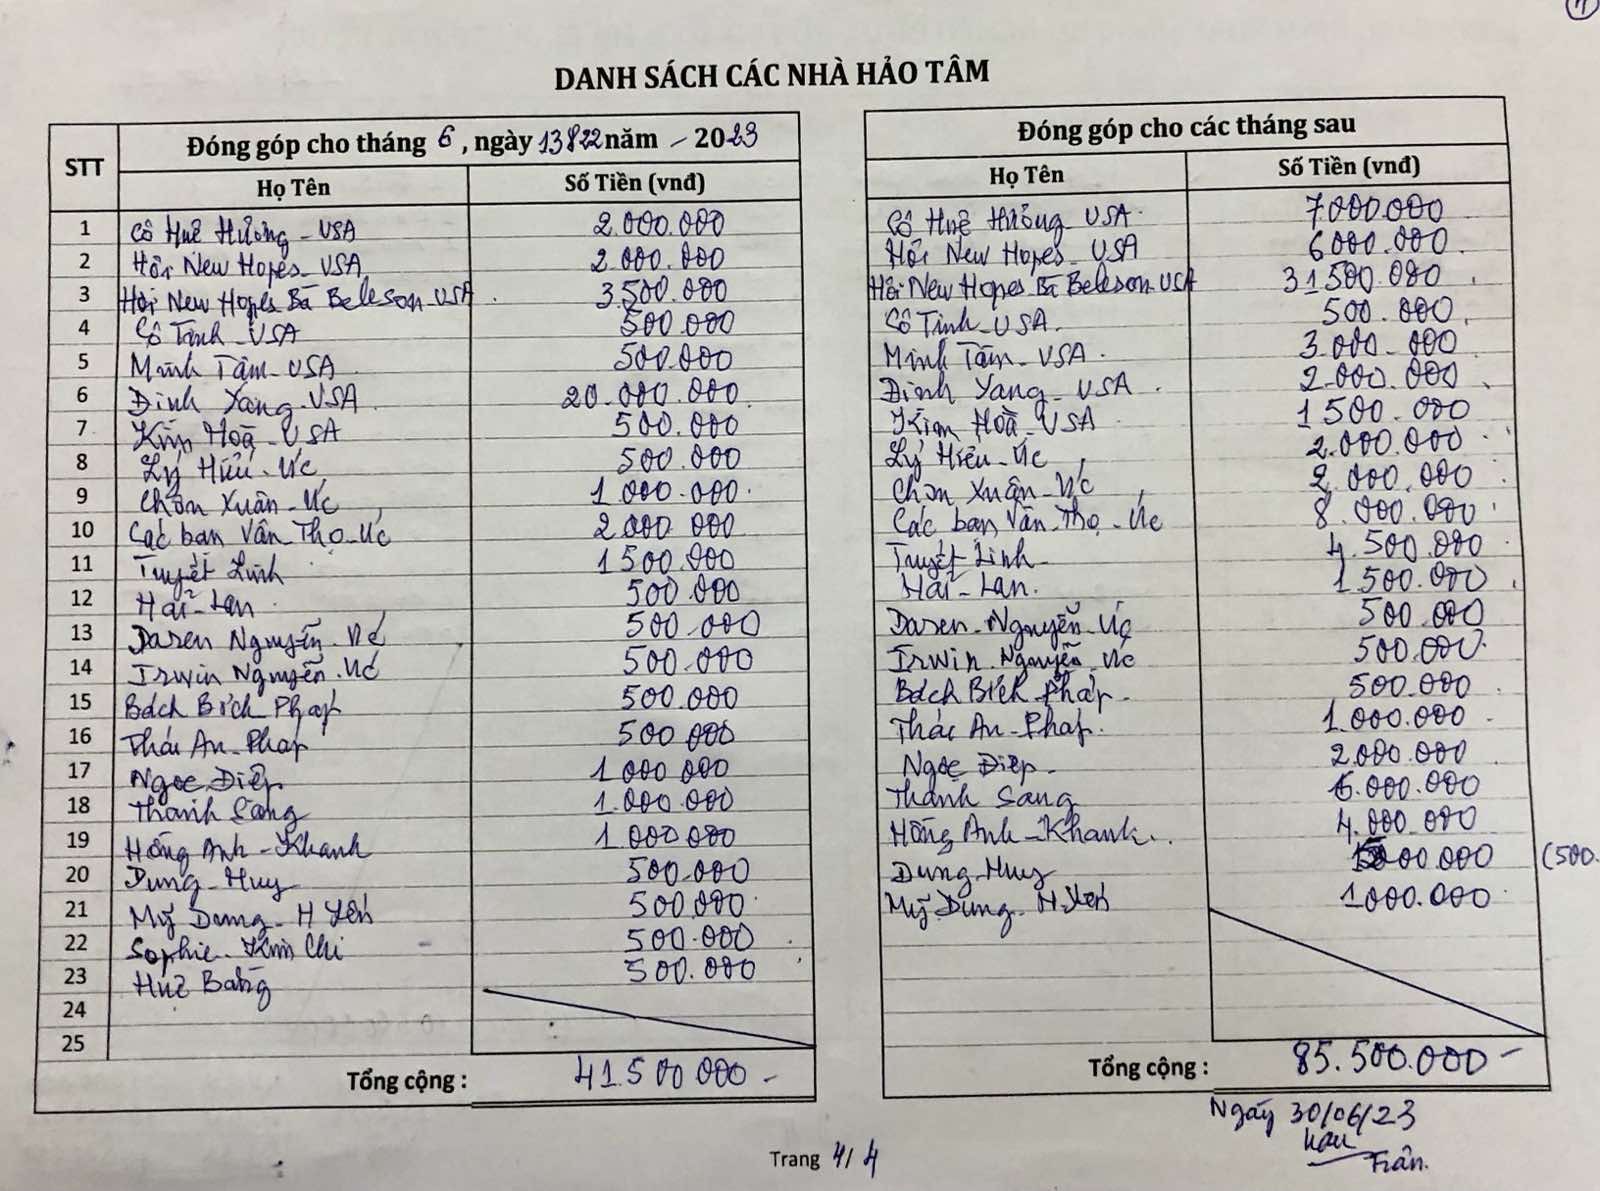 DANH SÁCH CÁC NHÀ HẢO TÂM
STT Đóng góp cho tháng 6, ngày 13&22 năm - 2023 Đóng góp cho các tháng sau
Họ Tên Số Tiền (vnđ) Họ Tên Số Tiền (vnđ)
1 Cô Huê Hường - USA 2.000.000 Cô Huê Hường USA. 7.000.000
2 Hội New Hopes - USA 2.000.000 Hội New Hopes - USA 6.000.000
3 Hội New Hopes Bà Beleson USA 3.500.000 Hội New Hopes Bà Beleson USA 31.500.000
4 Cô Tình USA 500.000 Cô Tình - USA. 500.000
5 Minh Tâm - USA 500.000 Minh Tâm - USA. 3.000.000
6 Đinh Yang - USA 20.000.000 Đinh Yang - USA 2.000.000
7 Kim Hoà - USA 500.000 Kim Hoà - USA 1.500.000
8 Lý Hiếu - Úc 500.000 Lý Hiếu - Úc 2.000.000
9 Chơn Xuân - Úc 1.000.000 Chơn Xuân - Úc 2.000.000
10 Các bạn Vân Thọ - Úc 2.000.000 Các bạn Vân Thọ - Úc 8.000.000
11 Tuyết Linh 1.500.000 Tuyết Linh 4.500.000
12 Hải - Lan 500.000 Hải - Lan 1.500.000
13 Daren Nguyễn - Úc 500.000 Daren - Nguyễn - Úc 500.000
14 Irwin Nguyễn - Úc 500.000 Irwin Nguyễn - Úc 500.000
15 Bách Bích Pháp 500.000 Bách Bích Pháp 500.000
16 Thái An - Pháp 500.000 Thái An - Pháp. 1.000.000
17 Ngọc Điệp 1.000.000 Ngọc Điệp 2.000.000
18 Thanh Sang 1.000.000 Thanh Sang 6.000.000
19 Hồng Anh - Khanh 1.000.000 Hồng Anh - Khanh 4.000.000
20 Dung - Huy 500.000 Dung - Huy (500.
21 Mỹ Dung - H Yến 500.000 Mỹ Dung - H Yến 1.000.000
22 Sophie - Kim Chi 500.000
23 Huê Bang 500.000
24
25
Tổng cộng : 41.500.000 - Tổng cộng : 85.500.000 -
Ngày 30/06/23
Trân.
Trang 4/4